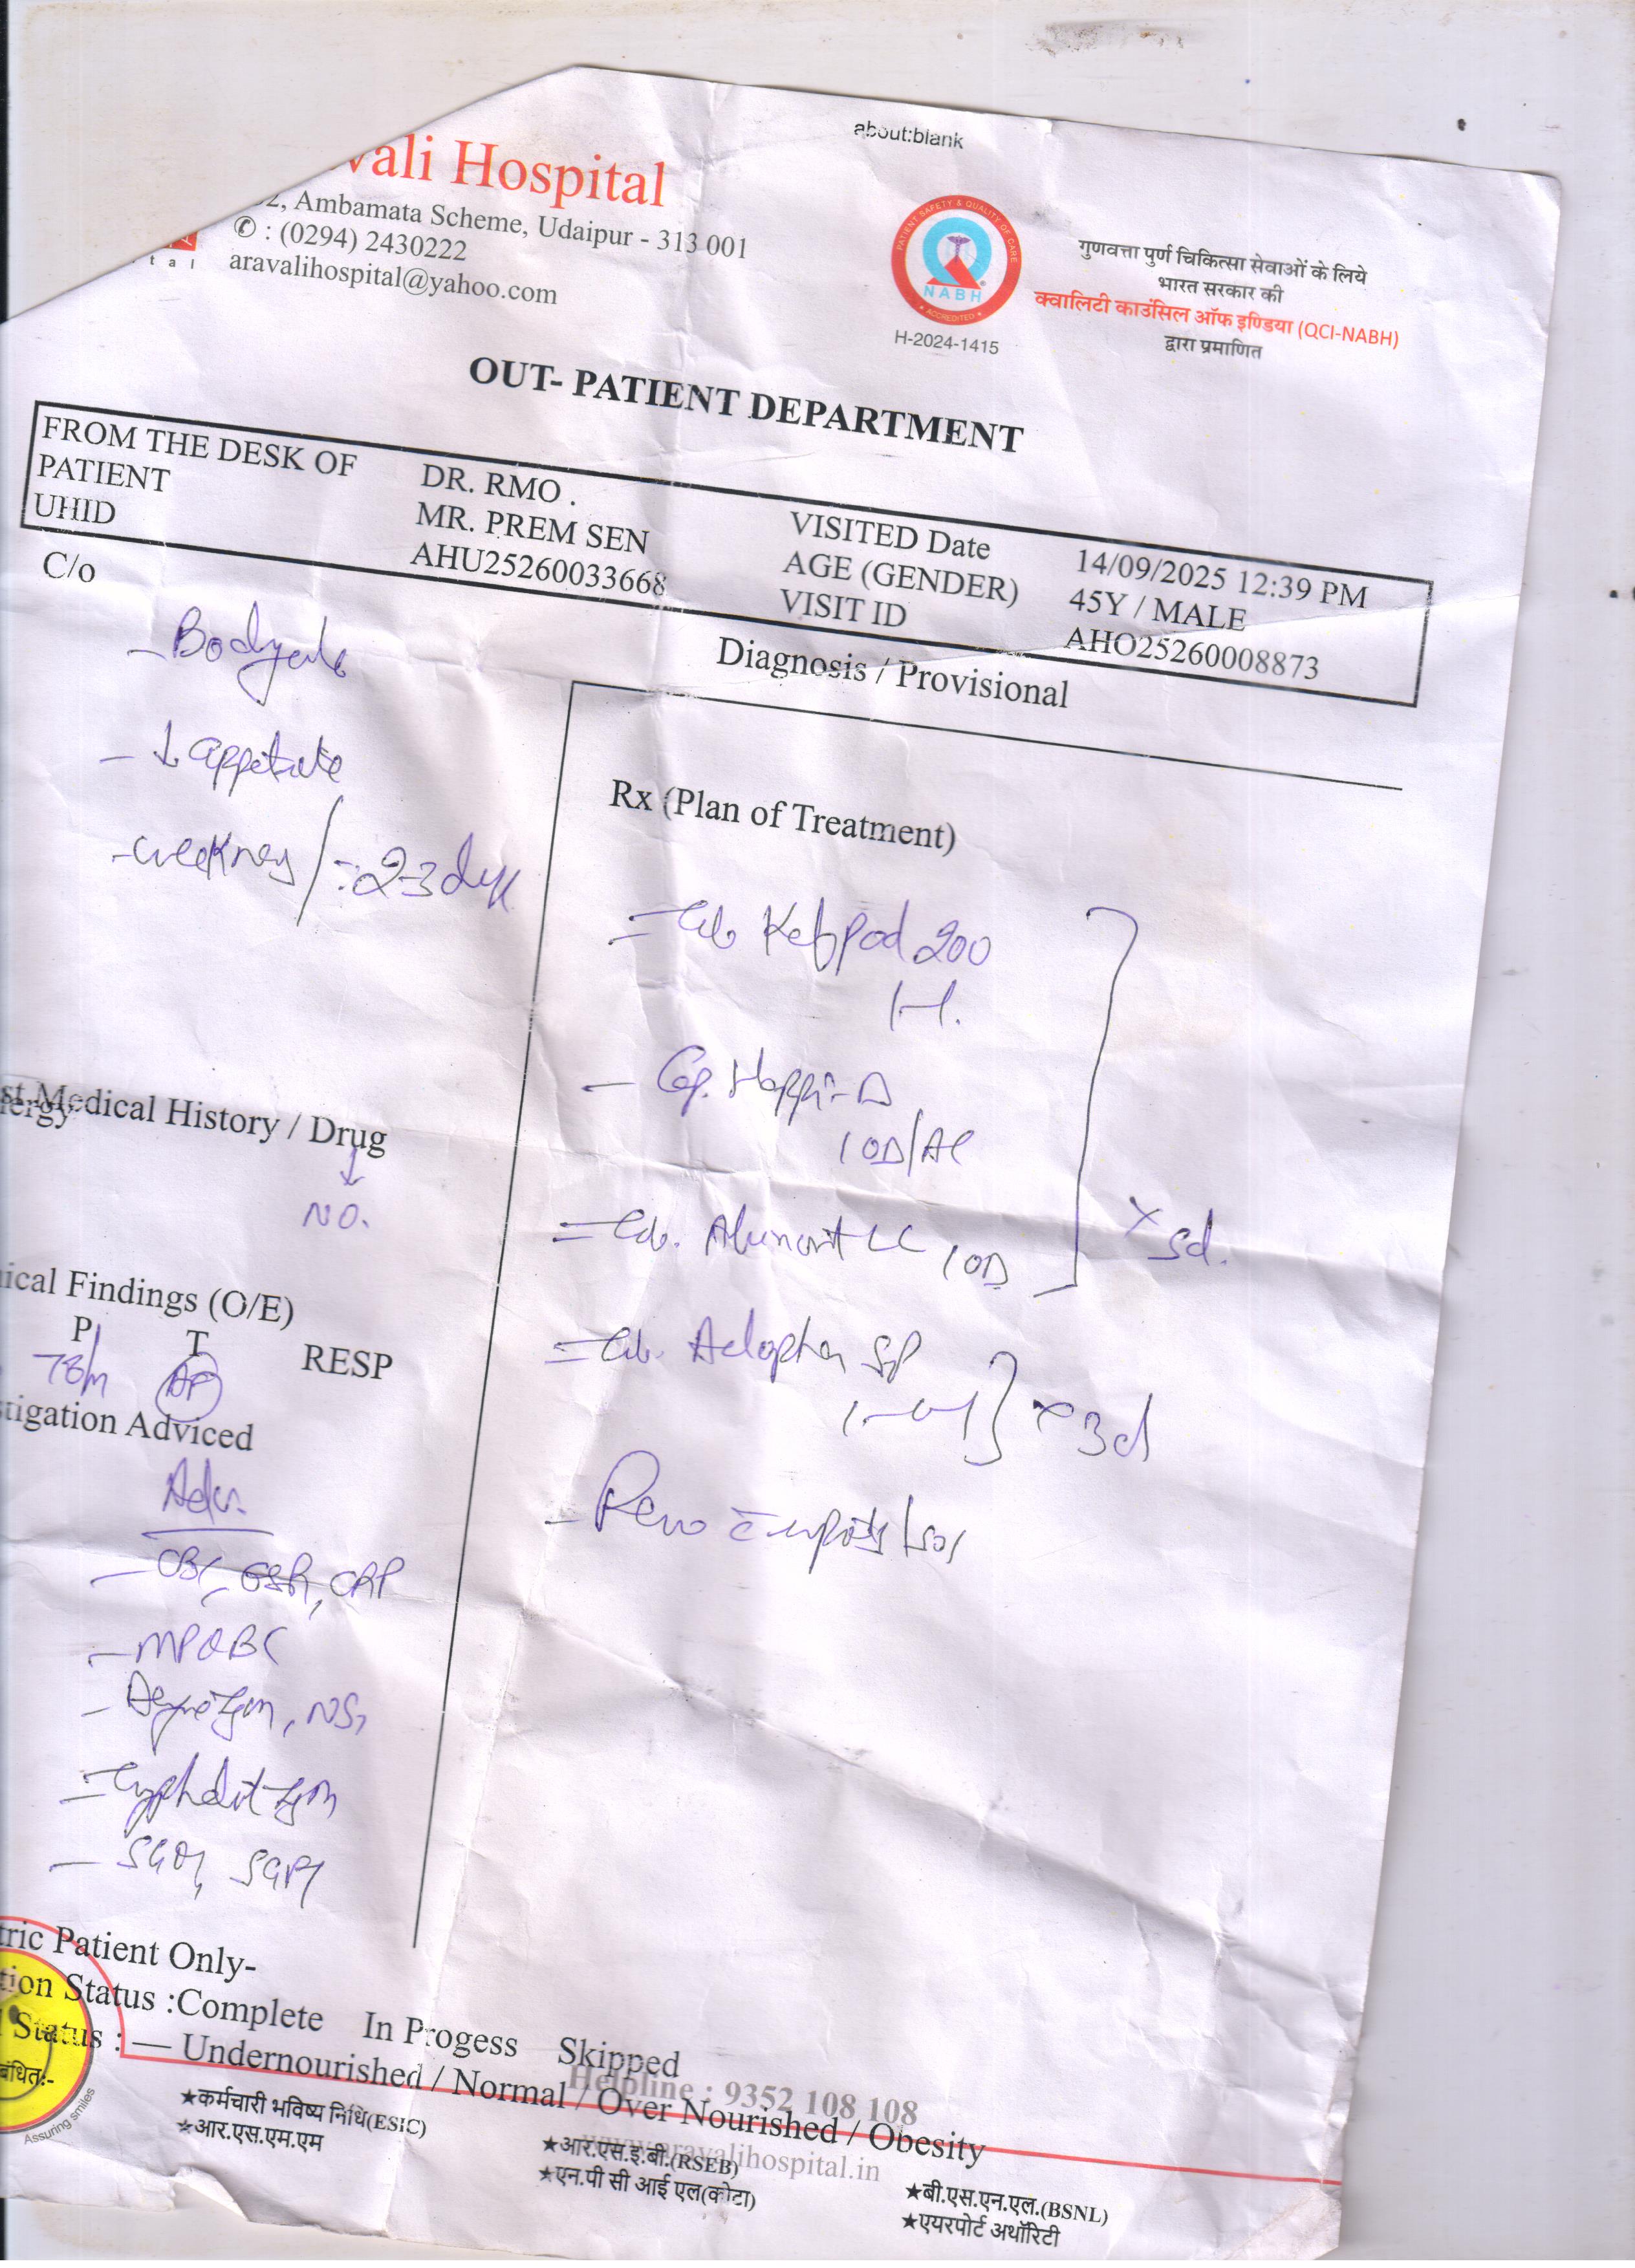 about:blank
vali Hospital
2, Ambamata Scheme, Udaipur - 313 001
✆ : (0294) 2430222
aravalihospital@yahoo.com
t a l
PATIENT SAFETY & QUALITY OF CARE
NABH
ACCREDITED
H-2024-1415
गुणवत्ता पुर्ण चिकित्सा सेवाओं के लिये
भारत सरकार की
क्वालिटी काउंसिल ऑफ इण्डिया (QCI-NABH)
द्वारा प्रमाणित
OUT- PATIENT DEPARTMENT
FROM THE DESK OF DR. RMO . VISITED Date 14/09/2025 12:39 PM
PATIENT MR. PREM SEN AGE (GENDER) 45Y / MALE
UHID AHU25260033668 VISIT ID AHO25260008873
C/o
Diagnosis / Provisional
- Bodyache
- ↓ appetite
- weakness / : 2-3 days
Rx (Plan of Treatment)
Kefpod 200
1-1.
- Cap. Happi-D
1 OD/AC
LC 1 OD
x 5d.
SP
x 3d
st Medical History / Drug
lergy
↓
NO.
ical Findings (O/E)
P T RESP
78/m
tigation Adviced
Adv.
- CBC, ESR, CRP
- MPQBC
NS1
- SGOT, SGPT
tric Patient Only-
tion Status :Complete In Progess Skipped
Status : — Undernourished / Normal / Over Nourished / Obesity
Helpline : 9352 108 108
www.aravalihospital.in
बंधित:-
Assuring smiles
★कर्मचारी भविष्य निधि(ESIC)
★आर.एस.एम.एम
★आर.एस.इ.बी.(RSEB)
★एन.पी सी आई एल(कोटा)
★बी.एस.एन.एल.(BSNL)
★एयरपोर्ट अथॉरिटी